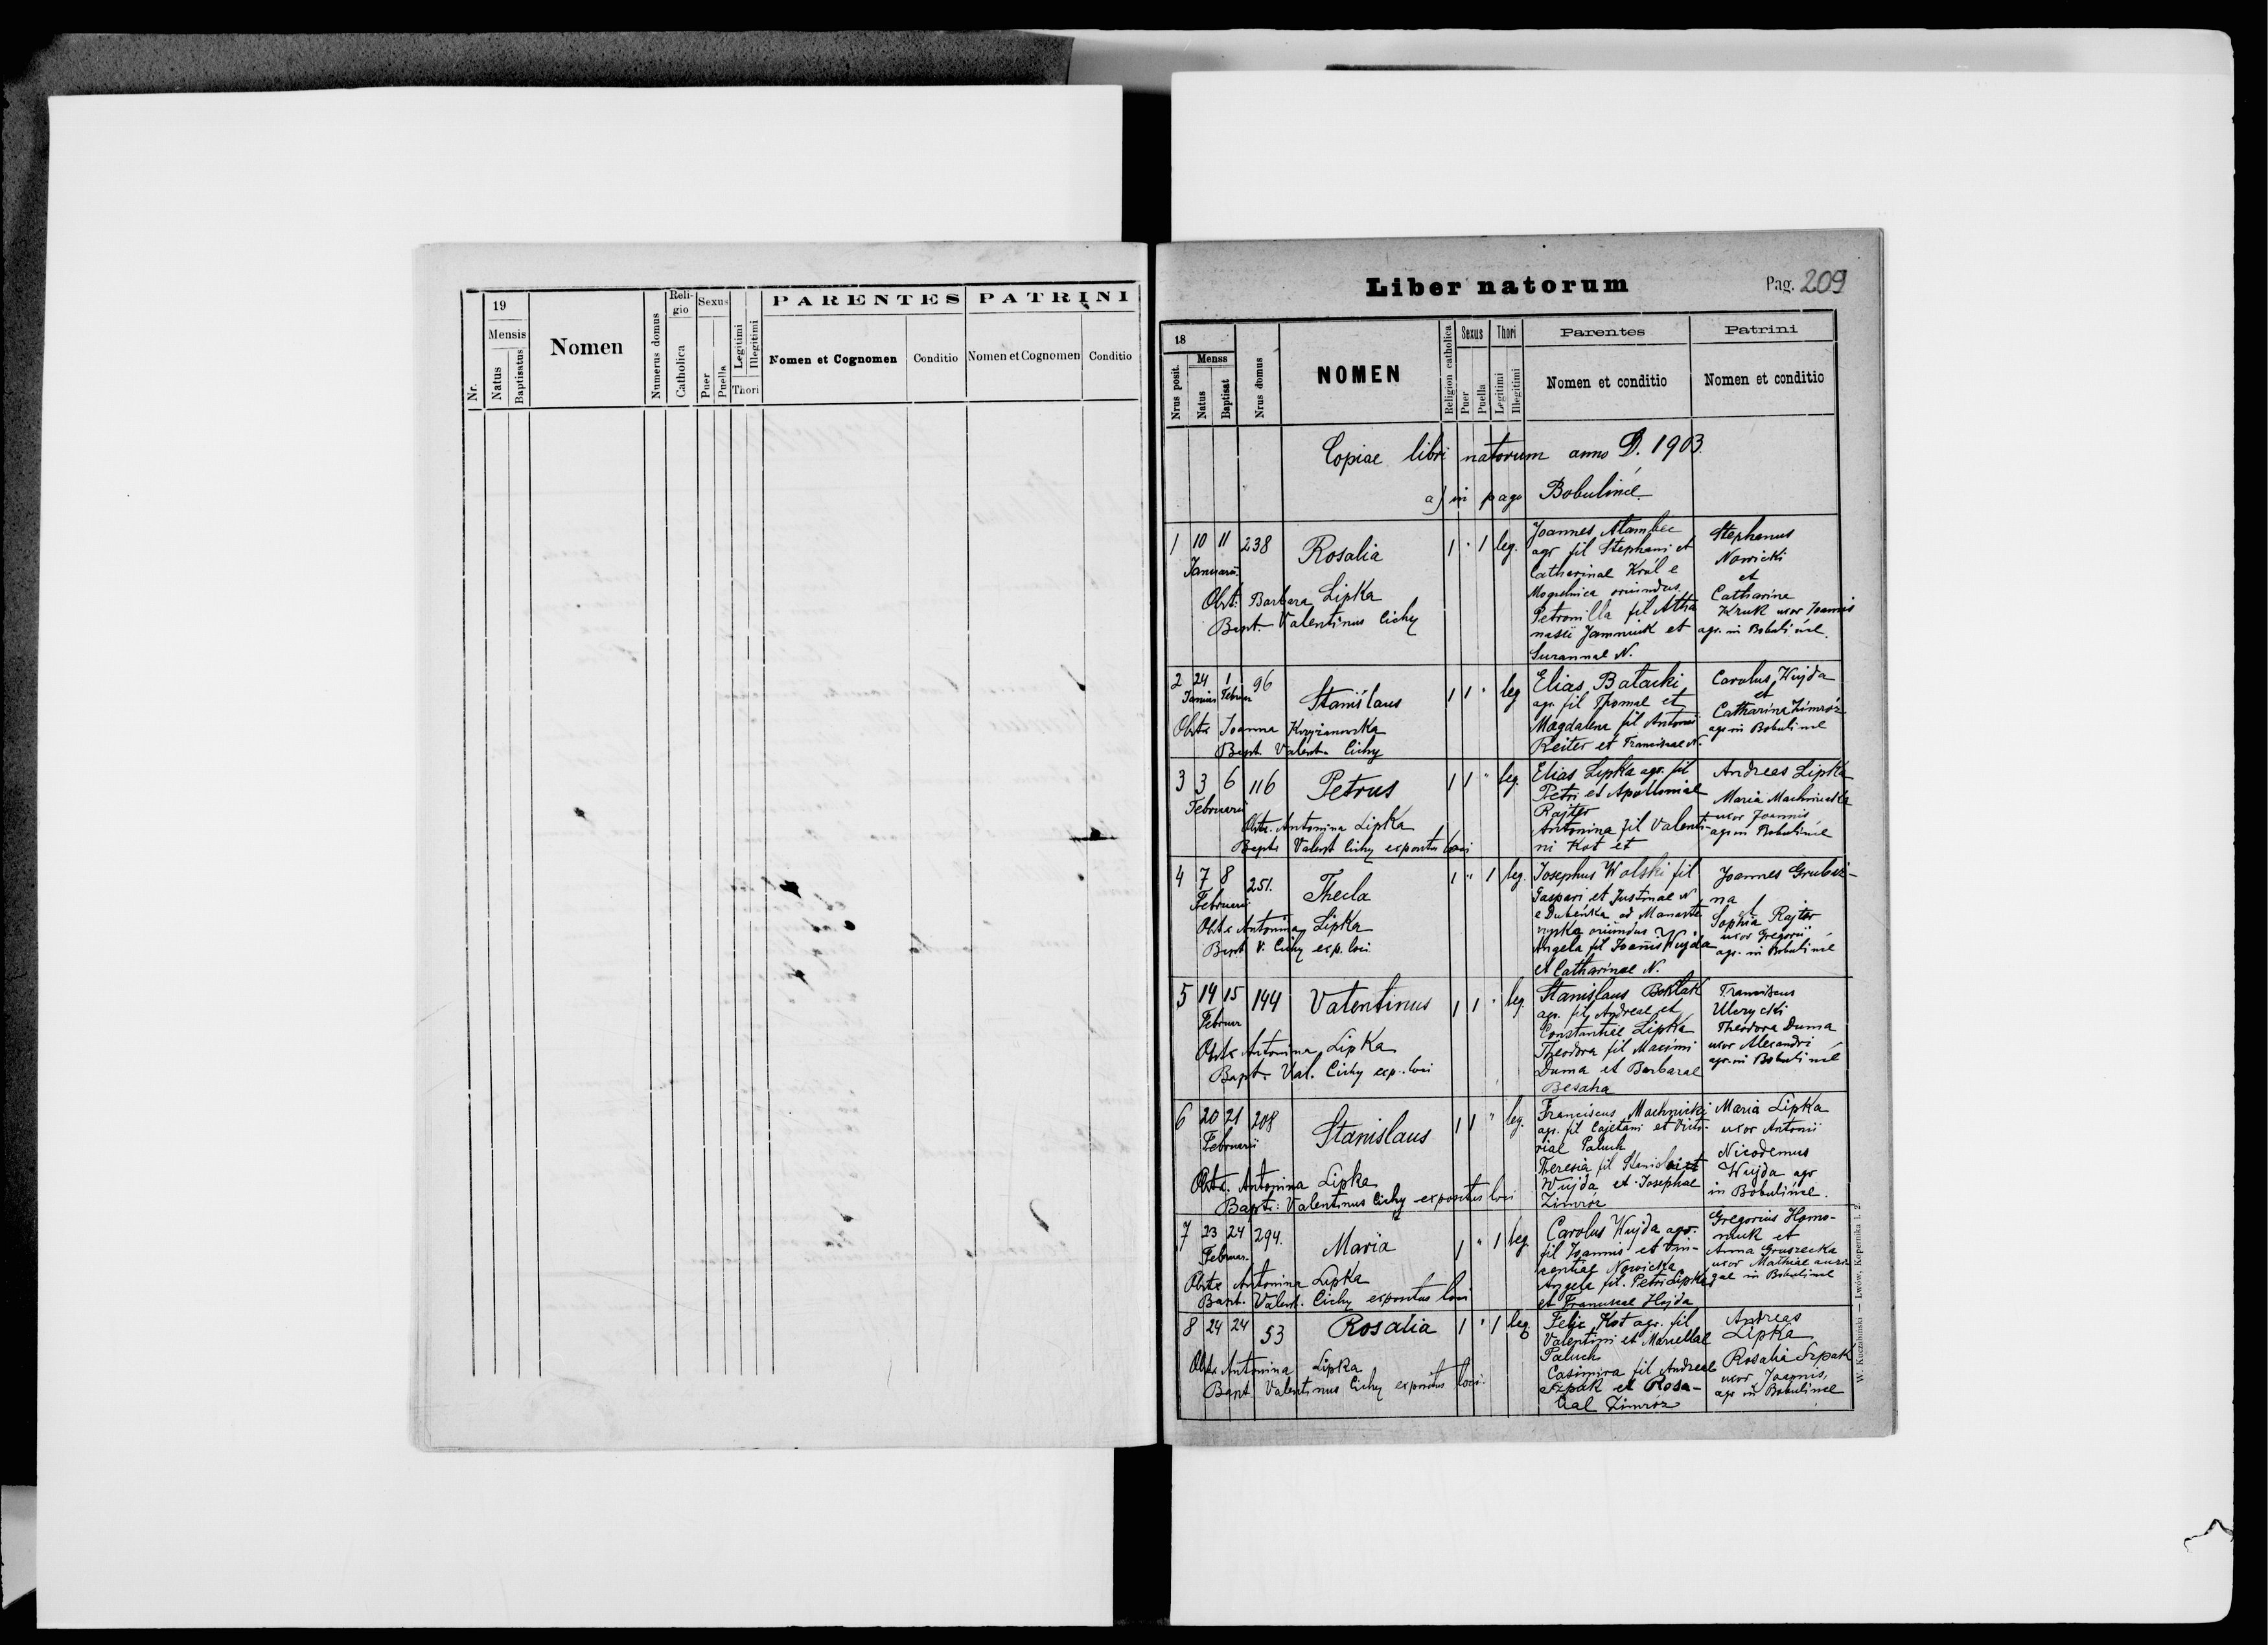 19
Nr.
Mensis
Natus
Baptisatus
Nomen
Numerus domus
Reli-
gio
Catholica
Sexus
Puer
Puella
Legitimi
Illegitimi
Thori
PARENTES
Nomen et Cognomen
Conditio
PATRINI
Nomen et Cognomen
Conditio
Liber natorum
Pag. 209
18
Nrus posit.
Menss
Natus
Baptisat
Nrus domus
NOMEN
Religion catholica
Sexus
Puer
Puella
Thori
Legitimi
Illegitimi
Parentes
Nomen et conditio
Patrini
Nomen et conditio
Copiae libri natorum anno D. 1903.
a) in pago Bobulińce.
1 10 11 238 Rosalia 1 " 1 leg.
Januarii
Obst. Barbara Lipka
Bapt. Valentinus Cichy
Joannes
agr fil Stephani et
Catherinae Król e
Mogielnica oriundus
Petronilla fil Atha
nasii Jamniuk et
Susannae N.
Stephanus
Nowicki
et
Catharina
Kruk uxor Joannis
agr. in Bobulińce.
2 24 1 96 Stanislaus 1 1 " leg
Januar Februar
Obstr Joanna Krzyżanowska
Bapt Valent. Cichy
Elias Batacki
agr. fil Thomae et
Magdalena fil Antonii
Reiter et Franciscae N.
Carolus Wujda
et
Catharina Zimróz
agr in Bobulińce
3 3 6 116 Petrus 1 1 " leg.
Februarii
Obstr. Antonina Lipka
Bapt. Valent Cichy expositus loci
Elias Lipka agr. fil
Petri et Apolloniae
Rajter
Antonina fil Valenti-
ni Kot et
Andreas Lipka
Maria Machnicka
uxor Joannis
agr in Bobulińce
4 7 8 251. Thecla 1 " 1 leg.
Februarii
Obstr Antonina Lipka
Bapt V. Cichy exp. loci
Josephus Wolski fil
Gaspari et Justinae N
e Dubenka ad Monaste
rzyska oriundus
Angela fil Joannis Wujda
et Catharinae N.
Joannes Grubi-
na
et
Sophia Rajter
uxor Gregorii
agr. in Bobulińce
5 14 15 144 Valentinus 1 1 " leg.
Februar
Obstr Antonina Lipka
Bapt. Val. Cichy exp. loci
Stanislaus
agr. fil Andreae et
Constantiae Lipka
Theodora fil Maximi
Duma et Barbarae
Besaha
Franciscus
Ulerycki
Theodora Duma
uxor Alexandri
agr. in Bobulińce
6 20 21 208 Stanislaus 1 1 " leg.
Februarii
Obstr. Antonina Lipka
Bapt: Valentinus Cichy expositus loci
Franciscus Machnicki
agr. fil Cajetani et Victo-
riae Paluch
Theresia fil Stanislai et
Wujda et Josephae
Zimróz
Maria Lipka
uxor Antonii
Nicodemus
Wujda agr
in Bobulińce.
7 23 24 294. Maria 1 " 1 leg
Februar.
Obstr Antonina Lipka
Bapt. Valent. Cichy expositus loci
Carolus Wujda agr.
fil Joannis et Vin-
centiae Nowicka
Angela fil. Petri Lipka
et Franciscae Hojda
Gregorius Homo-
niuk et
Anna Gruszecka
uxor Mathiae auri
gae in Bobulińce
8 24 24 53 Rosalia 1 " 1 leg
Obstr Antonina Lipka
Bapt Valentinus Cichy expositus loci.
Felix Kot agr. fil
Valentini et Marcellae
Paluch
Casimira fil Andreae
Szpak et Rosa-
liae Zimróz
Andreas
Lipka
Rosalia Szpak
uxor Joannis,
agr in Bobulińce
W. Kuczabiński — Lwów, Kopernika l. 2